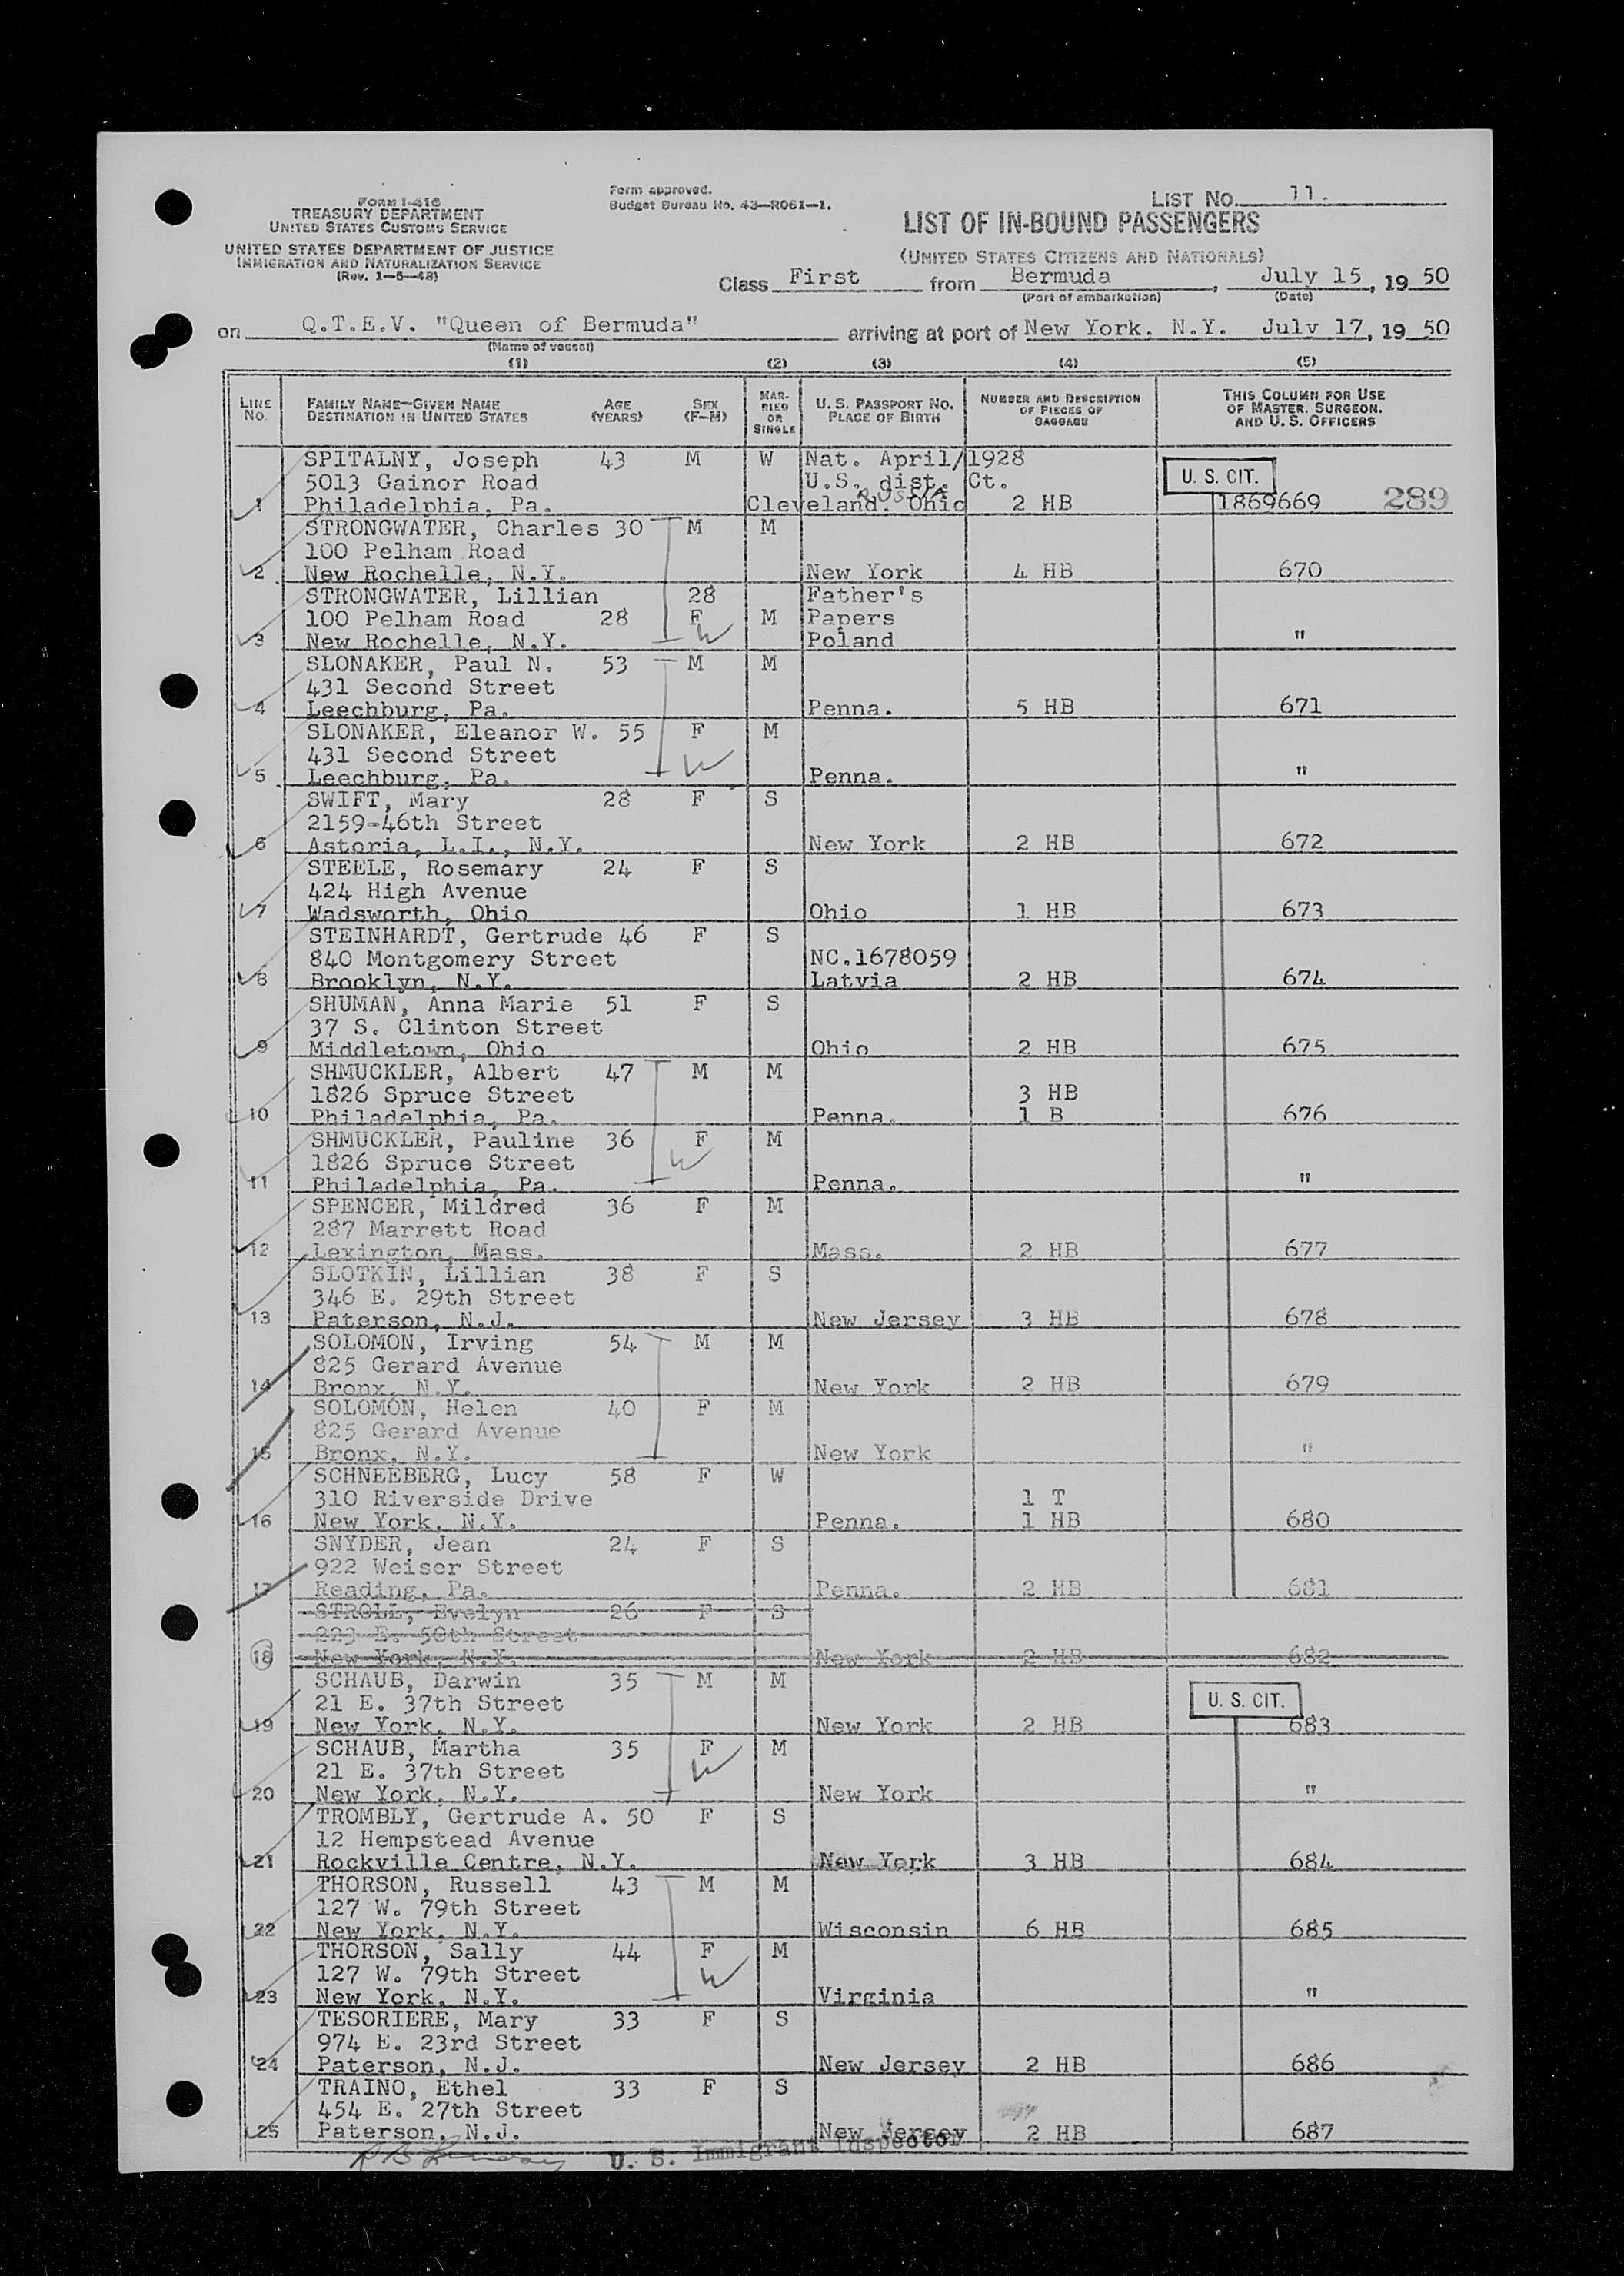 FORM I-416
TREASURY DEPARTMENT
UNITED STATES CUSTOMS SERVICE
UNITED STATES DEPARTMENT OF JUSTICE
IMMIGRATION AND NATURALIZATION SERVICE
(Rev. 1-5-48)
Form approved.
Budget Bureau No. 43-R061-1.
LIST NO. 11.
LIST OF IN-BOUND PASSENGERS
(UNITED STATES CITIZENS AND NATIONALS)
Class First from Bermuda, July 15, 19 50
(Port of embarkation) (Date)
on Q.T.E.V. "Queen of Bermuda" arriving at port of New York, N.Y. July 17, 19 50
(Name of vessel)
(1) (2) (3) (4) (5)
LINE NO. FAMILY NAME—GIVEN NAME DESTINATION IN UNITED STATES AGE (YEARS) SEX (F-M) MARRIED OR SINGLE U. S. PASSPORT NO. PLACE OF BIRTH NUMBER AND DESCRIPTION OF PIECES OF BAGGAGE THIS COLUMN FOR USE OF MASTER, SURGEON, AND U. S. OFFICERS
SPITALNY, Joseph 43 M W Nat. April/1928
5013 Gainor Road U.S. dist. Ct. U. S. CIT.
RUSSIA
1 Philadelphia, Pa. Cleveland. Ohio 2 HB 1869669 289
STRONGWATER, Charles 30 M M
100 Pelham Road
2 New Rochelle, N.Y. New York 4 HB 670
STRONGWATER, Lillian 28 Father's
100 Pelham Road 28 F M Papers
3 New Rochelle, N.Y. W Poland "
SLONAKER, Paul N. 53 M M
431 Second Street
4 Leechburg, Pa. Penna. 5 HB 671
SLONAKER, Eleanor W. 55 F M
431 Second Street W
5 Leechburg, Pa. Penna. "
SWIFT, Mary 28 F S
2159-46th Street
6 Astoria, L.I., N.Y. New York 2 HB 672
STEELE, Rosemary 24 F S
424 High Avenue
7 Wadsworth, Ohio Ohio 1 HB 673
STEINHARDT, Gertrude 46 F S
840 Montgomery Street NC.1678059
8 Brooklyn, N.Y. Latvia 2 HB 674
SHUMAN, Anna Marie 51 F S
37 S. Clinton Street
9 Middletown, Ohio Ohio 2 HB 675
SHMUCKLER, Albert 47 M M
1826 Spruce Street 3 HB
10 Philadelphia, Pa. Penna. 1 B 676
SHMUCKLER, Pauline 36 F M
1826 Spruce Street W
11 Philadelphia, Pa. Penna. "
SPENCER, Mildred 36 F M
287 Marrett Road
12 Lexington, Mass. Mass. 2 HB 677
SLOTKIN, Lillian 38 F S
346 E. 29th Street
13 Paterson, N.J. New Jersey 3 HB 678
SOLOMON, Irving 54 M M
825 Gerard Avenue
14 Bronx, N.Y. New York 2 HB 679
SOLOMON, Helen 40 F M
825 Gerard Avenue
15 Bronx, N.Y. New York "
SCHNEEBERG, Lucy 58 F W
310 Riverside Drive 1 T
16 New York, N.Y. Penna. 1 HB 680
SNYDER, Jean 24 F S
922 Weiser Street
17 Reading, Pa. Penna. 2 HB 681
STROLL, Evelyn 26 F S
223 E. 50th Street
18 New York, N.Y. New York 2 HB 682
SCHAUB, Darwin 35 M M
21 E. 37th Street U. S. CIT.
19 New York, N.Y. New York 2 HB 683
SCHAUB, Martha 35 F M
21 E. 37th Street W
20 New York, N.Y. New York "
TROMBLY, Gertrude A. 50 F S
12 Hempstead Avenue
21 Rockville Centre, N.Y. New York 3 HB 684
THORSON, Russell 43 M M
127 W. 79th Street
22 New York, N.Y. Wisconsin 6 HB 685
THORSON, Sally 44 F M
127 W. 79th Street W
23 New York, N.Y. Virginia "
TESORIERE, Mary 33 F S
974 E. 23rd Street
24 Paterson, N.J. New Jersey 2 HB 686
TRAINO, Ethel 33 F S
454 E. 27th Street
25 Paterson, N.J. New Jersey 2 HB 687
U. S. Immigrant Inspector